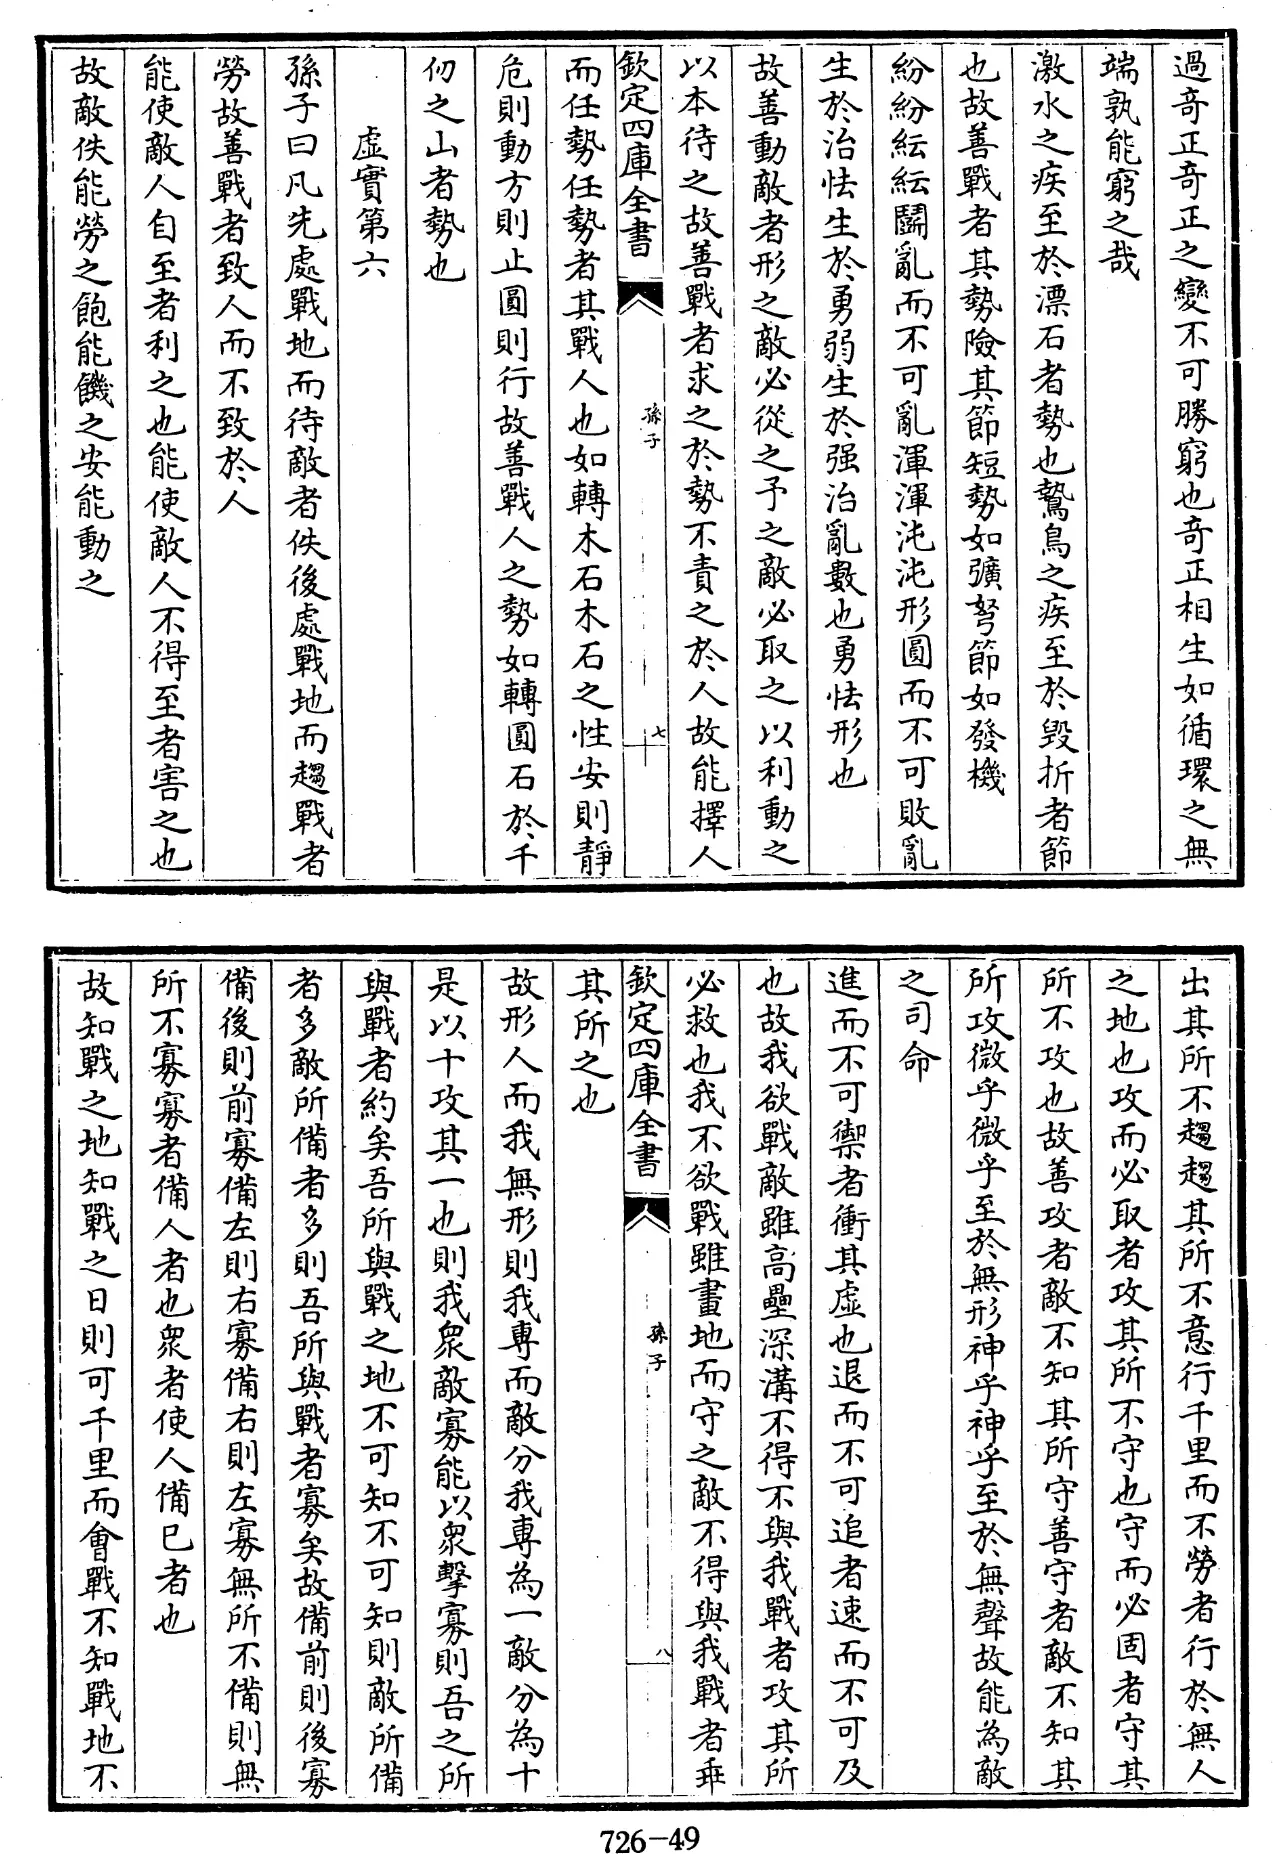 過奇正奇正之變不可勝窮也奇正相生如循環之無
端孰能窮之哉
激水之疾至於漂石者勢也鷙鳥之疾至於毁折者節
也故善戰者其勢險其節短勢如彍弩節如發機
紛紛紜紜鬭亂而不可亂渾渾沌沌形圓而不可敗亂
生於治怯生於勇弱生於强治亂數也勇怯形也
故善動敵者形之敵必從之予之敵必取之以利動之
以本待之故善戰者求之於勢不責之於人故能擇人
欽定四庫全書
孫子
七
而任勢任勢者其戰人也如轉木石木石之性安則靜
危則動方則止圓則行故善戰人之勢如轉圓石於千
仞之山者勢也
虛實第六
孫子曰凡先處戰地而待敵者佚後處戰地而趨戰者
勞故善戰者致人而不致於人
能使敵人自至者利之也能使敵人不得至者害之也
故敵佚能勞之飽能饑之安能動之
出其所不趨趨其所不意行千里而不勞者行於無人
之地也攻而必取者攻其所不守也守而必固者守其
所不攻也故善攻者敵不知其所守善守者敵不知其
所攻微乎微乎至於無形神乎神乎至於無聲故能為敵
之司命
進而不可禦者衝其虛也退而不可追者速而不可及
也故我欲戰敵雖高壘深溝不得不與我戰者攻其所
必救也我不欲戰雖畫地而守之敵不得與我戰者乖
欽定四庫全書
孫子
八
其所之也
故形人而我無形則我專而敵分我專為一敵分為十
是以十攻其一也則我衆敵寡能以衆擊寡則吾之所
與戰者約矣吾所與戰之地不可知不可知則敵所備
者多敵所備者多則吾所與戰者寡矣故備前則後寡
備後則前寡備左則右寡備右則左寡無所不備則無
所不寡寡者備人者也衆者使人備已者也
故知戰之地知戰之日則可千里而會戰不知戰地不
726-49